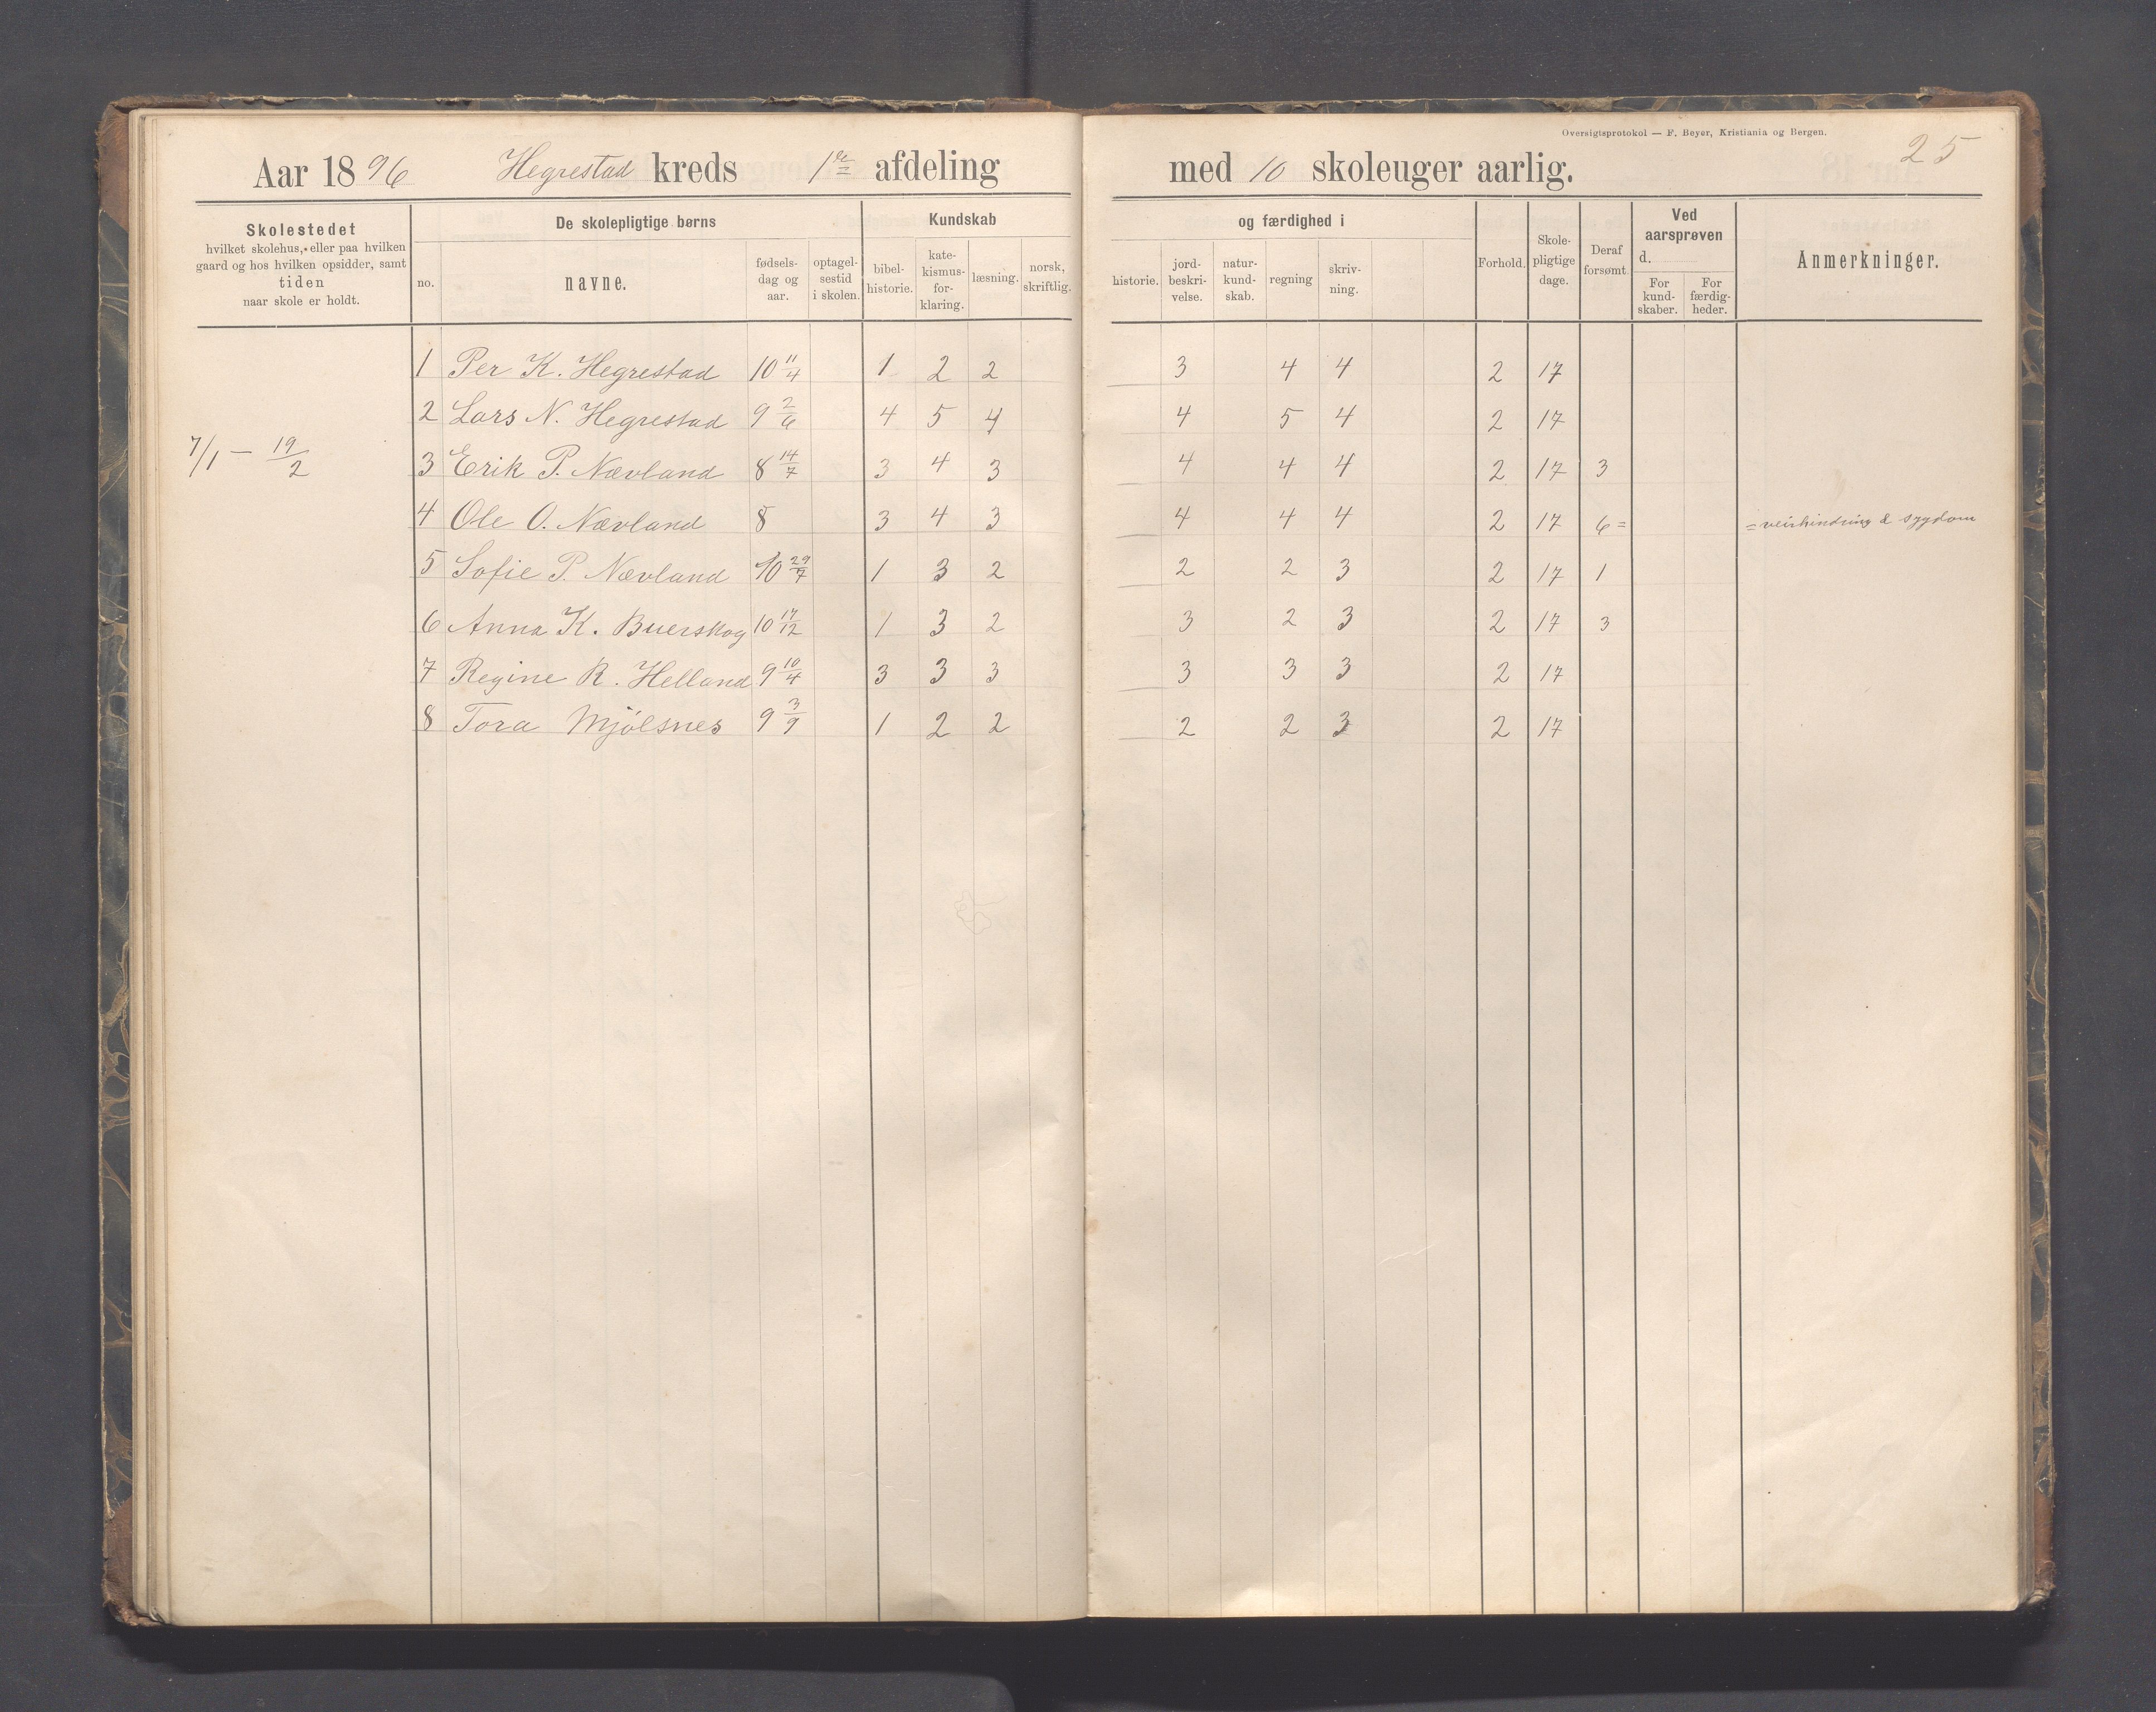 Oversigtsprotokol — F. Beyer, Kristiania og Bergen.
25
Aar 1896 Hegrestad kreds 1ste afdeling med 10 skoleuger aarlig.
Skolestedet
hvilket skolehus, eller paa hvilken
gaard og hos hvilken opsidder, samt
tiden
naar skole er holdt.
De skolepligtige børns
no.
navne.
fødsels-
dag og
aar.
optagel-
sestid
i skolen.
Kundskab
bibel-
historie.
kate-
kismus-
for-
klaring.
læsning.
norsk,
skriftlig.
og færdighed i
historie.
jord-
beskri-
velse.
natur-
kund-
skab.
regning
skriv-
ning.
Forhold.
Skole-
pligtige
dage.
Deraf
forsømt.
Ved
aarsprøven
d.
For
kund-
skaber.
For
færdig-
heder.
Anmerkninger.
7/1 — 19/2
1 Per K. Hegrestad 10 11/4 1 2 2 3 4 4 2 17
2 Lars N. Hegrestad 9 2/6 4 5 4 4 5 4 2 17
3 Erik P. Nævland 8 14/7 3 4 3 4 4 4 2 17 3
4 Ole O. Nævland 8 3 4 3 4 4 4 2 17 6= = veirhindring & sygdom
5 Sofie P. Nævland 10 29/7 1 3 2 2 2 3 2 17 1
6 Anna K. Buerskog 10 17/12 1 3 2 3 2 3 2 17 3
7 Regine R. Helland 9 10/4 3 3 3 3 3 3 2 17
8 Tora Mjölsnes 9 3/9 1 2 2 2 2 3 2 17